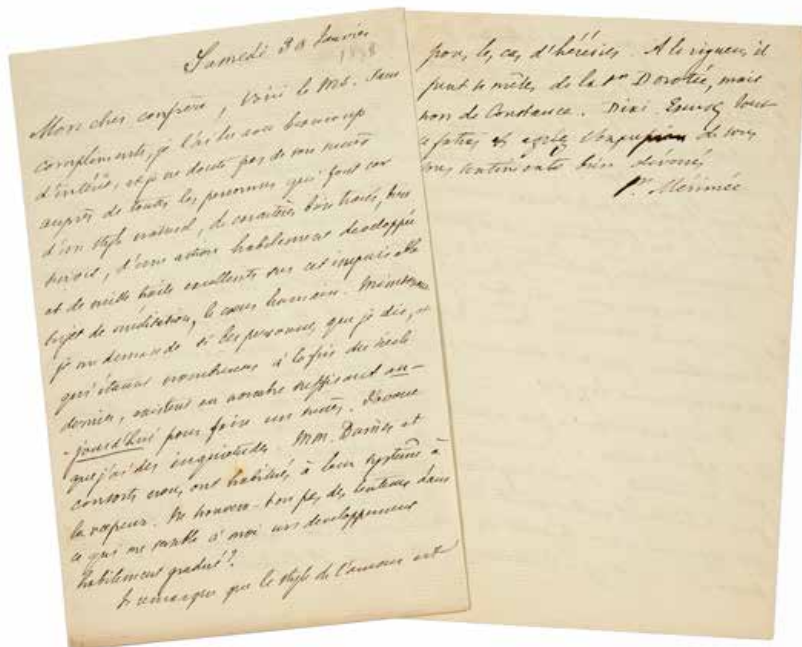 Samedi 30 Janvier
1858
Mon cher confrère, voici le MS. Sans
compliments, je l'ai lu avec beaucoup
d'intérêt, et je ne doute pas de son succès
auprès de toutes les personnes qui font cas
d'un style naturel, de caractères bien tracés, bien
suivis, d'une action habilement developpée
et de mille traits excellents sur cet inépuisable
sujet de méditation, le cœur humain. Maintenant
je me demande si les personnes que je dis, et
qui étaient nombreuses à la fin du siècle
dernier, existent en nombre suffisant au-
-jourd'hui pour faire un succès. J'avoue
que j'ai des inquiétudes. MM. Dumas et
consorts nous ont habitués à leur système à
la vapeur. Ne trouvera-t-on pas des lenteurs dans
ce qui me semble à moi un developpement
habilement gradué?
Je remarque que le style de l'amour est
pour les cas d'hérésies. A la rigueur il
peut se mêler de la Dorotée, mais
non de Constance. Dixi. Excusez tout
ce fatras et agréez l'expression de tous
mes sentiments bien dévoués
Pr Mérimée